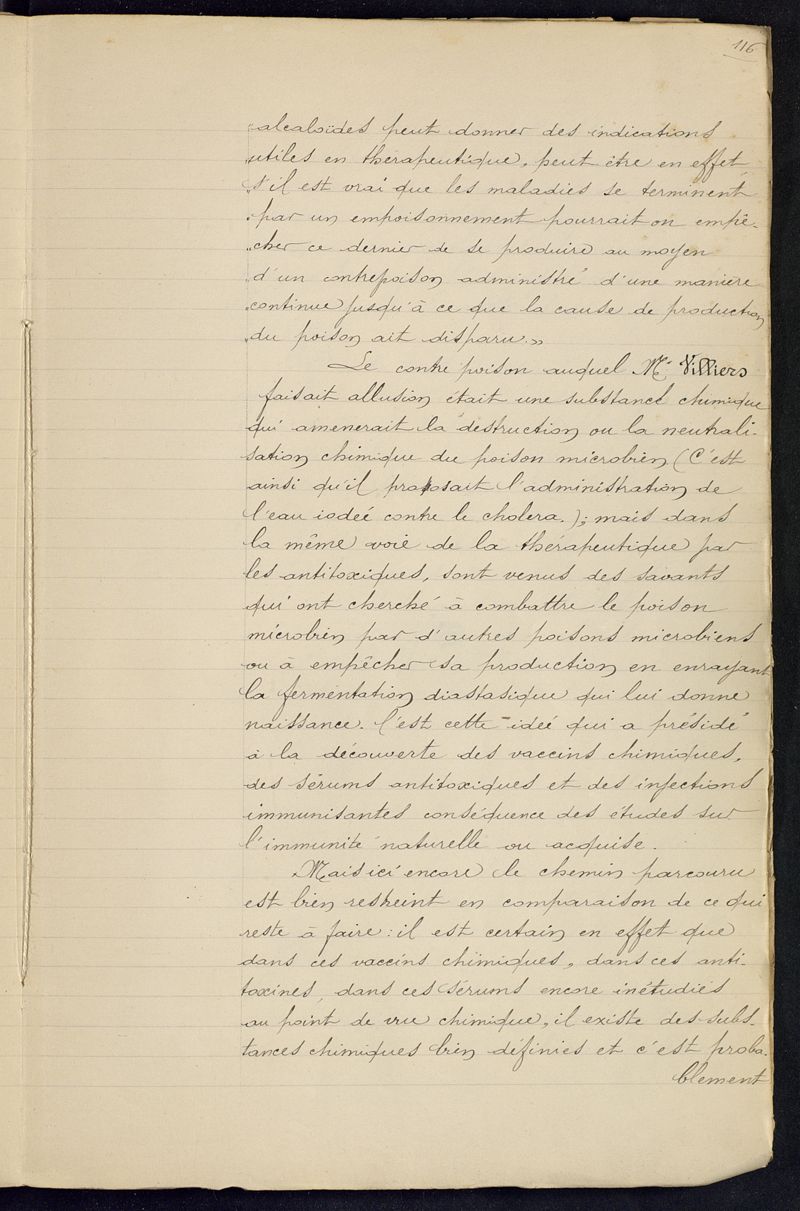 116
„alcaloïdes peut donner des indications
„utiles en thérapeutique, peut être en effet,
„s'il est vrai que les maladies se terminent
„par un empoisonnement pourrait on empê-
„cher ce dernier de se produire au moyen
„d'un contrepoison administré d'une manière
„continue jusqu'à ce que la cause de production
„du poison ait disparu.»
Le contre poison auquel Mr Villiers
faisait allusion était une substance chimique
qui amenerait la destruction ou la neutrali-
sation chimique du poison microbien (C'est
ainsi qu'il proposait l'administration de
l'eau iodée contre le cholera.); mais dans
la même voie de la thérapeutique par
les antitoxiques, sont venus des savants
qui ont cherché à combattre le poison
microbien par d'autres poisons microbiens
ou à empêcher sa production en enrayant
la fermentation diastasique qui lui donne
naissance. C'est cette idée qui a présidé
à la découverte des vaccins chimiques,
des sérums antitoxiques et des infections
immunisantes conséquence des études sur
l'immunité naturelle ou acquise.
Mais ici encore le chemin parcouru
est bien restreint en comparaison de ce qui
reste à faire: il est certain en effet que
dans ces vaccins chimiques, dans ces anti-
toxines, dans ces sérums encore inétudiés
au point de vue chimique, il existe des subs-
tances chimiques bien définies et c'est proba-
blement